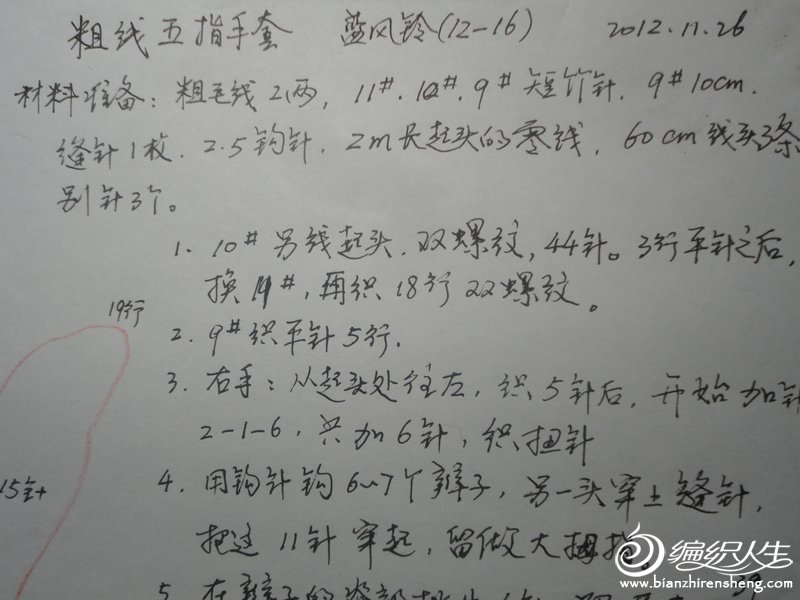 粗线五指手套 蓝风铃(12-16) 2012.11.26
材料准备：粗毛线2两，11#.10#.9#短竹针.9#10cm.
缝针1枚.2.5钩针.2m长起头的零线，60cm线头3条
别针3个。
1. 10#另线起头.双螺纹，44针。3行平针之后，
换11#，再织18行双螺纹。
19行
2. 9#织平针5行.
3. 右手：从起头处往左，织5针后，开始加针
2-1-6，共加6针，织扭针
15针
4. 用钩针钩6~7个辫子，另一头穿上缝针，
把这11针穿起，留做大拇指
5. 在辫子的
编织人生
www.bianzhirensheng.com